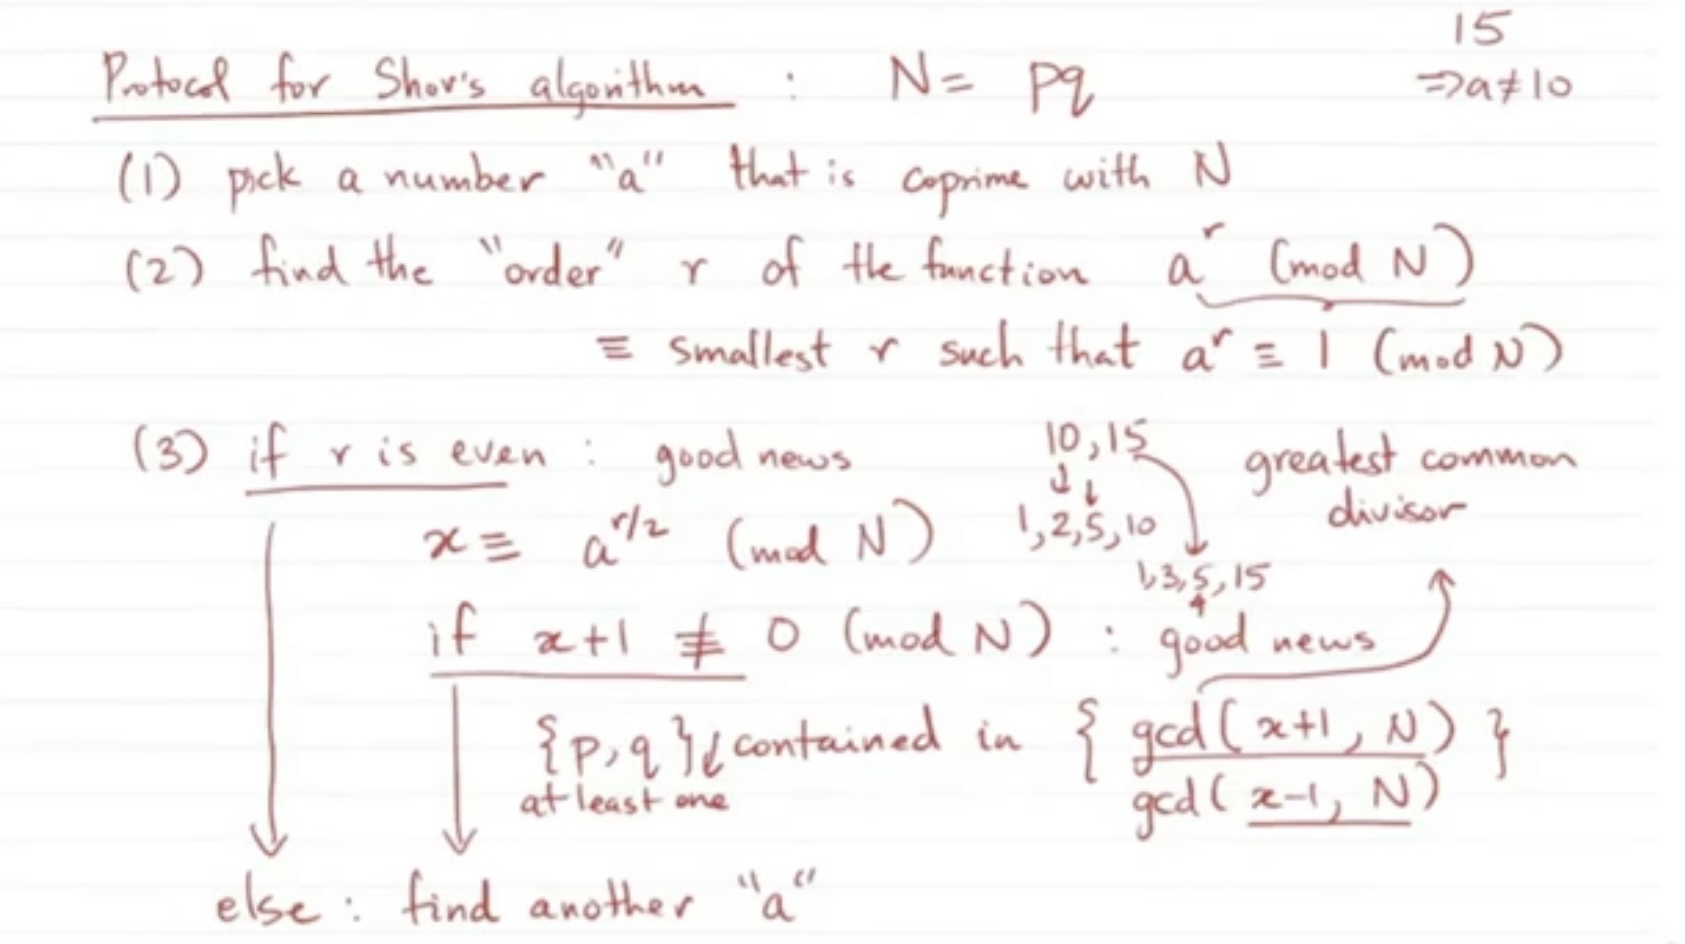 15
Protocol for Shor's algorithm : N = pq
⇒ a ≠ 10
(1) pick a number "a" that is coprime with N
(2) find the "order" r of the function a^r (mod N)
≡ smallest r such that a^r ≡ 1 (mod N)
(3) if r is even : good news
10, 15
greatest common
divisor
x ≡ a^{r/2} (mod N)
1, 2, 5, 10
1, 3, 5, 15
if x+1 ≢ 0 (mod N) : good news
{p, q} contained in { gcd(x+1, N) }
at least one
gcd(x-1, N)
else : find another "a"